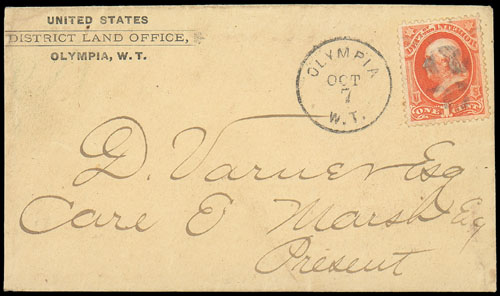 UNITED STATES
DISTRICT LAND OFFICE,
OLYMPIA, W. T.
OLYMPIA
OCT
7
W.T.
DEPT. OF THE INTERIOR
ONE CENT
D. Varner Esq
Care E Marsh Esq
Present